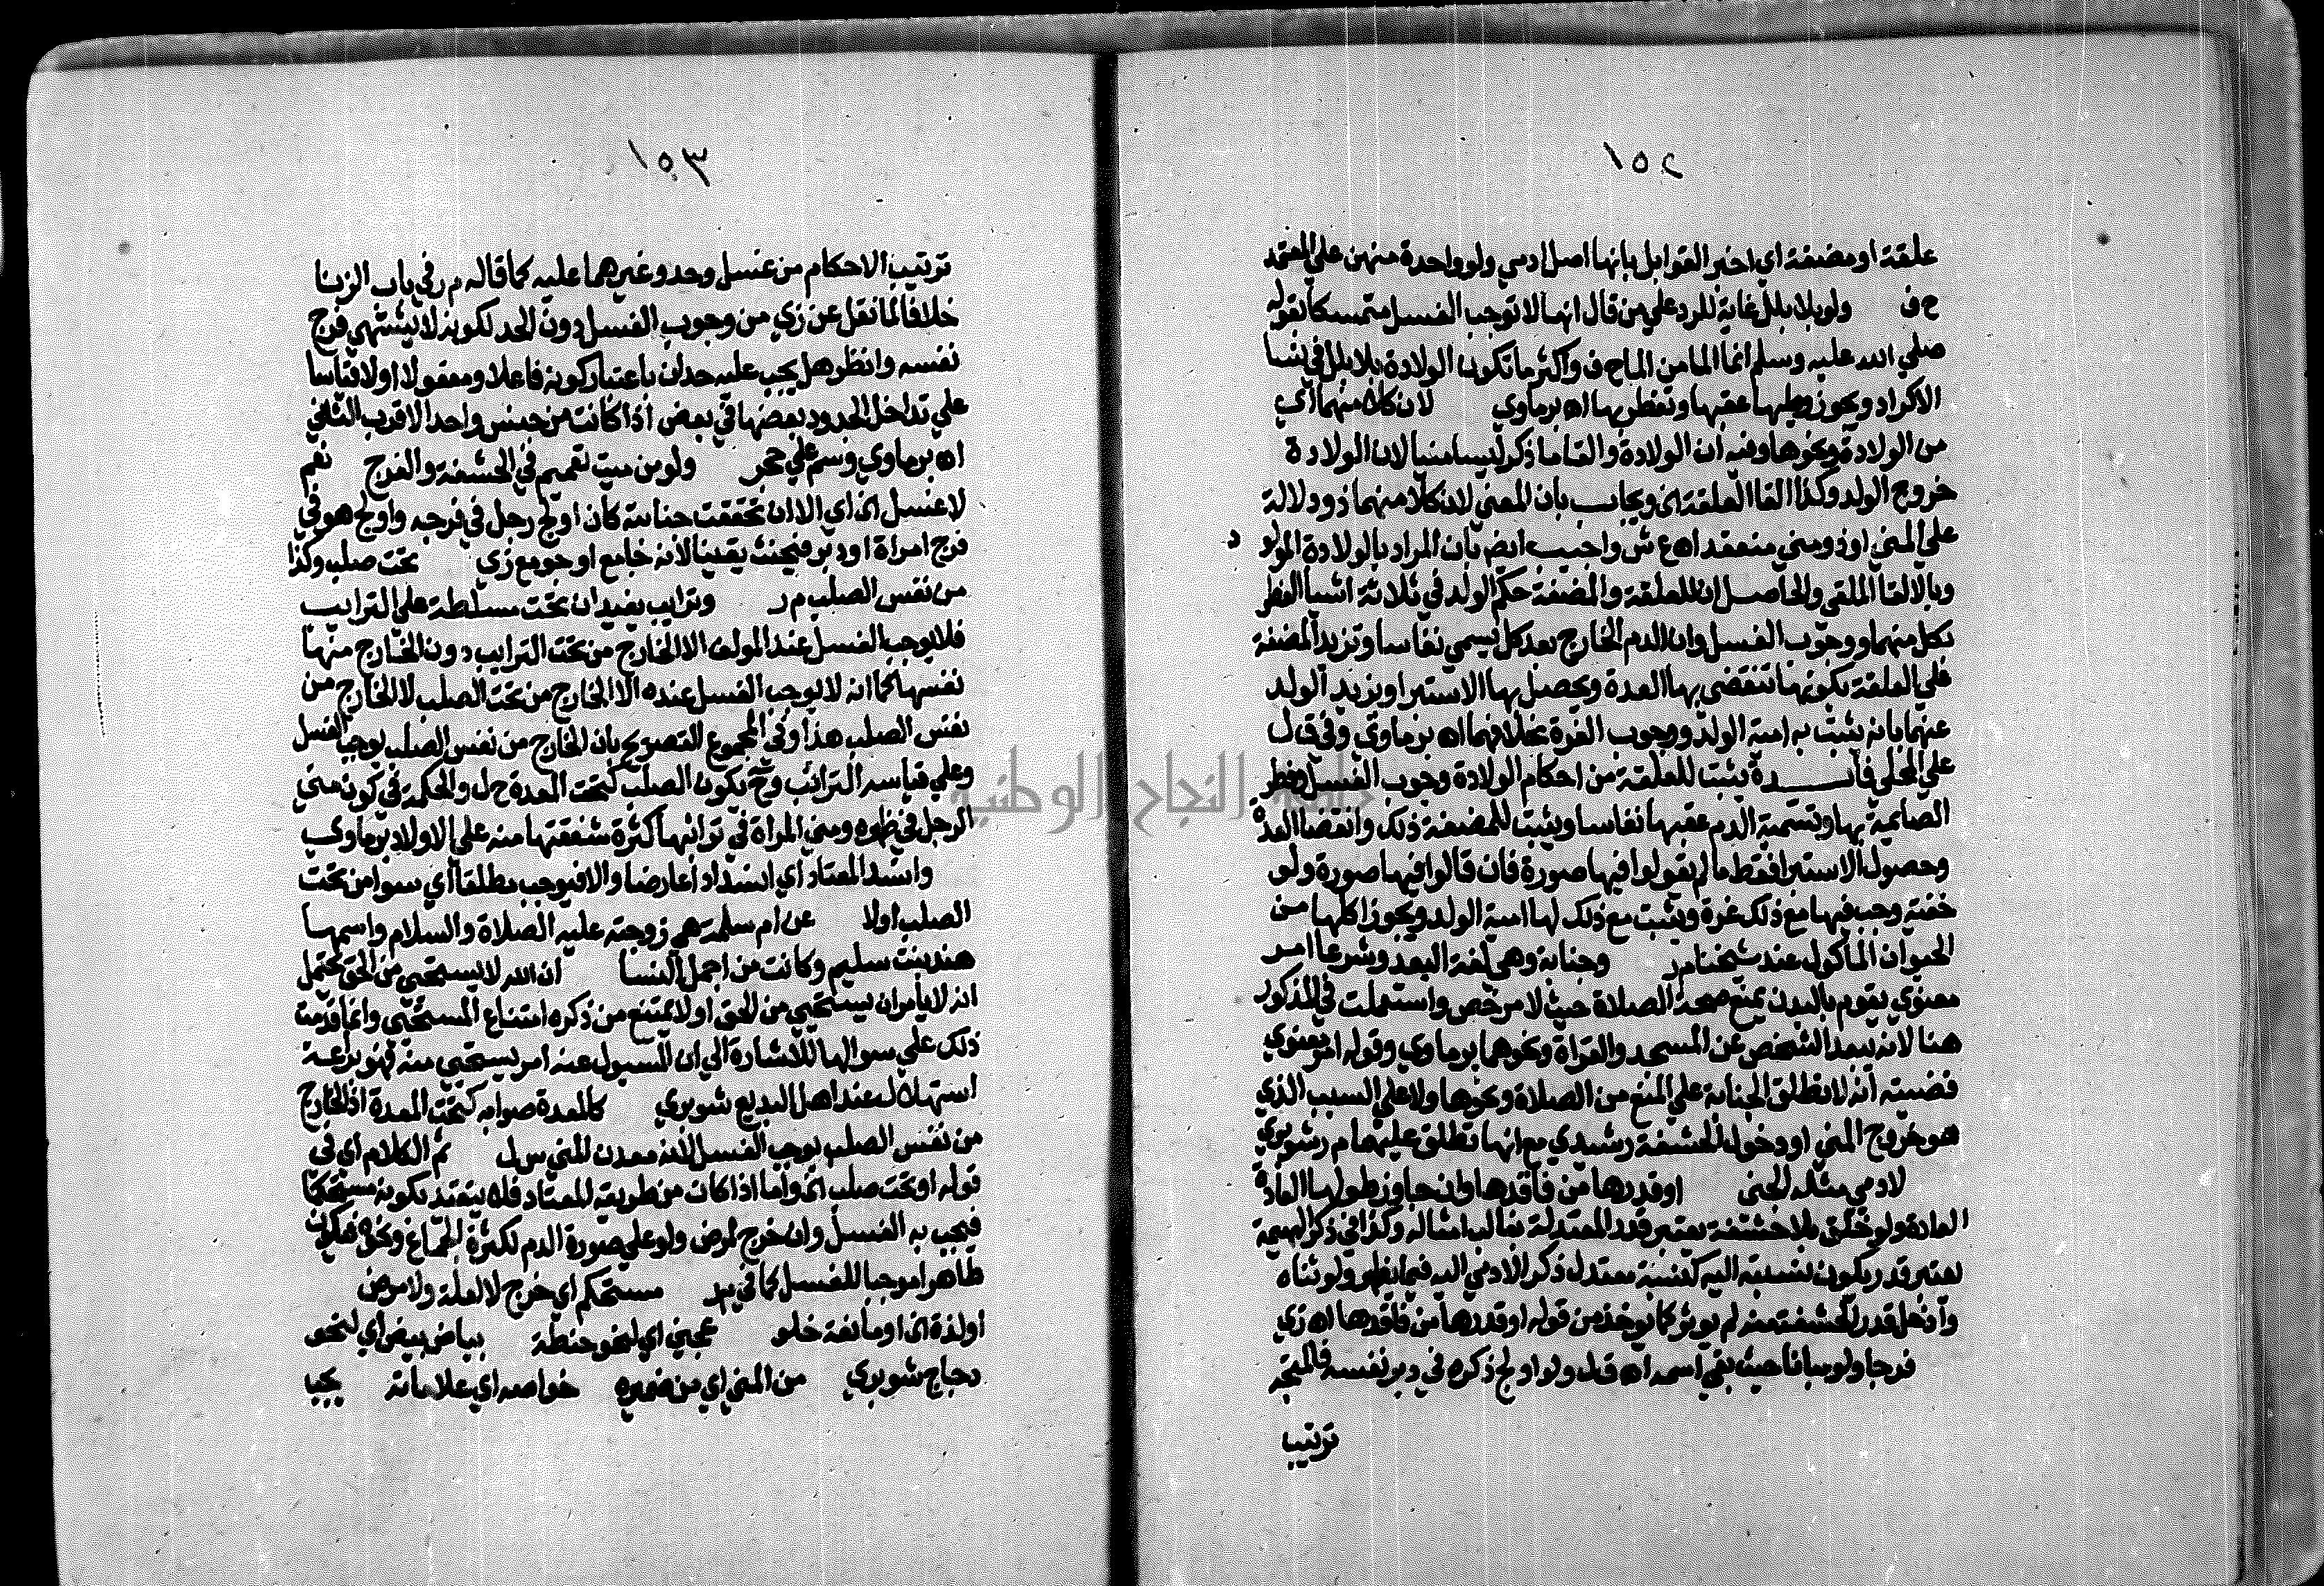 ١٥٢
علقة او مضغة اي اخبر القوابل بانها اصل ادمي ولو واحدة منهن علي المعتمد
ح ف ولو بلا بلل غاية للرد علي من قال انها لا توجب الغسل متمسكا بقوله
صلي الله عليه وسلم انما الما من الما ح ف واكثر ما تكون الولادة بلا بلل في نسا
الاكراد ويجوز وطيها عقبها وتفطر بها اه برماوي لان كلا منهما اي
من الولادة ونحوها وفيه ان الولادة والقا ما ذكر ليسا منيا لان الولادة
خروج الولد وكذا القا العلقة الخ ويجاب بان المعني لان كلا منهما ذو دلالة
علي المني او ذو مني منعقد اه ع ش واجيب ايض بان المراد بالولادة المولود
وبالالقا الملقي والحاصل ان للعلقة والمضغة حكم الولد في ثلاثة اشيا الفطر
بكل منهما ووجوب الغسل وان الدم الخارج بعد كل يسمي نفاسا وتزيد المضغة
علي العلقة بكونها تنقضي بها العدة ويحصل بها الاستبرا ويزيد الولد
عنهما بانه يثبت به امية الولد ووجوب الغرة بخلافهما اه برماوي وفي ق ل
علي المحلي فائدة يثبت للعلقة من احكام الولادة وجوب الغسل وفطر
الصائمة بها وتسمية الدم عقبها نفاسا ويثبت للمضغة ذلك وانقضا العدة
وحصول الاستبرا فقط ما لم يقولوا فيها صورة فان قالوا فيها صورة ولو
خفية وجب فيها مع ذلك غرة ويثبت مع ذلك لها امية الولد ويجوز اكلها من
الحيوان الماكول عند شيخنا م ر وجنابة وهي لغة البعد وشرعا امر
معنوي يقوم بالبدن يمنع صحة الصلاة حيث لا مرخص واستعملت في المذكور
هنا لانه يبعد الشخص عن المسجد والقراة ونحوهما برماوي وقوله امر معنوي
قضيته انه لا تطلق الجنابة علي المنع من الصلاة ونحوها ولا علي السبب الذي
هو خروج المني او دخول الحشفة رشيدي مع انها تطلق عليهما م ر شوبري
لادمي مثله الجني او قدرها من فاقدها وان جاوز طولها العادة
العادة ولو خلق بلا حشفة يعتبر قدر المعتدلة بغالب امثاله وكذا في ذكر البهيمة
يعتبر قدر يكون نسبته اليه كنسبة معتدل ذكر الادمي اليه فيما يظهر ولو ثناه
وادخل قدر الحشفة منه لم يوثر كما يوخذ من قوله او قدرها من فاقدها اه زي
فرجا ولو مبانا حيث بقي اسمه اه ق ل ولو اولج ذكره في دبر نفسه فالمتجه
ترتيب
١٥٣
ترتيب الاحكام من غسل وحد وغيرهما عليه كما قاله م ر في باب الزنا
خلافا لما نقل عن زي من وجوب الغسل دون الحد لكونه لا يشتهي فرج
نفسه وانظر هل يجب عليه حدان باعتبار كونه فاعلا ومفعولا او لا قياسا
علي تداخل الحدود بعضها في بعض اذا كانت من جنس واحد الاقرب الثاني
اه برماوي وسم علي حجر ولو من ميت تعميم في الحشفة والفرج نعم
لا غسل الخ اي الا ان تحققت جنابته كان اولج رجل في فرجه واولج هو في
فرج امراة او دبر فيجنب يقينا لانه جامع او جومع زي تحت صلب وكذا
من نفس الصلب م ر وترايب يفيد ان تحت مسلطة علي الترايب
فلا يوجب الغسل عند المولف الا الخارج من تحت الترايب دون الخارج منها
نفسها كما انه لا يوجب الغسل عنده الا الخارج من تحت الصلب لا الخارج من
نفس الصلب هذا وفي المجموع التصريح بان الخارج من نفس الصلب يوجب الغسل
وعلي قياسه الترائب وح يكون الصلب كتحت المعدة ح ل والحكمة في كون مني
الرجل في ظهره ومني المراة في ترائبها كثرة شفقتها منه علي الاولاد برماوي
وانسد المعتاد اي انسدادا عارضا والا فيوجب مطلقا اي سوا من تحت
الصلب او لا عن ام سلمة هي زوجته عليه الصلاة والسلام واسمها
هند بنت سليم وكانت من اجمل النسا ان الله لا يستحي من الحق يحتمل
انه لا يامر ان يستحي من الحق او لا يمتنع من ذكره امتناع المستحي وانما قدمت
ذلك علي سوالها للاشارة الي ان المسيول عنه امر يستحي منه فهو براعة
استهلال عند اهل البديع شوبري كالمعدة صوابه كتحت المعدة اذ الخارج
من نفس الصلب يوجب الغسل لانه معدن للمني س ل ثم الكلام اي في
قوله او تحت صلب الخ واما اذا كان من طريقه المعتاد فلا يتقيد بكونه مستحكما
فيجب به الغسل وان خرج لمرض ولو علي صورة الدم لكثرة الجماع ونحوه فيكون
طاهرا موجبا للغسل كما في م ر مستحكم اي خرج لا لعلة ولا مرض
او لذة الخ او مانعة خلو عجين اي لنحو حنطة بياض بيض اي لنحو
دجاج شوبري من المني اي من غيره خواصه اي علاماته يحيا
جامعة النجاح الوطنية